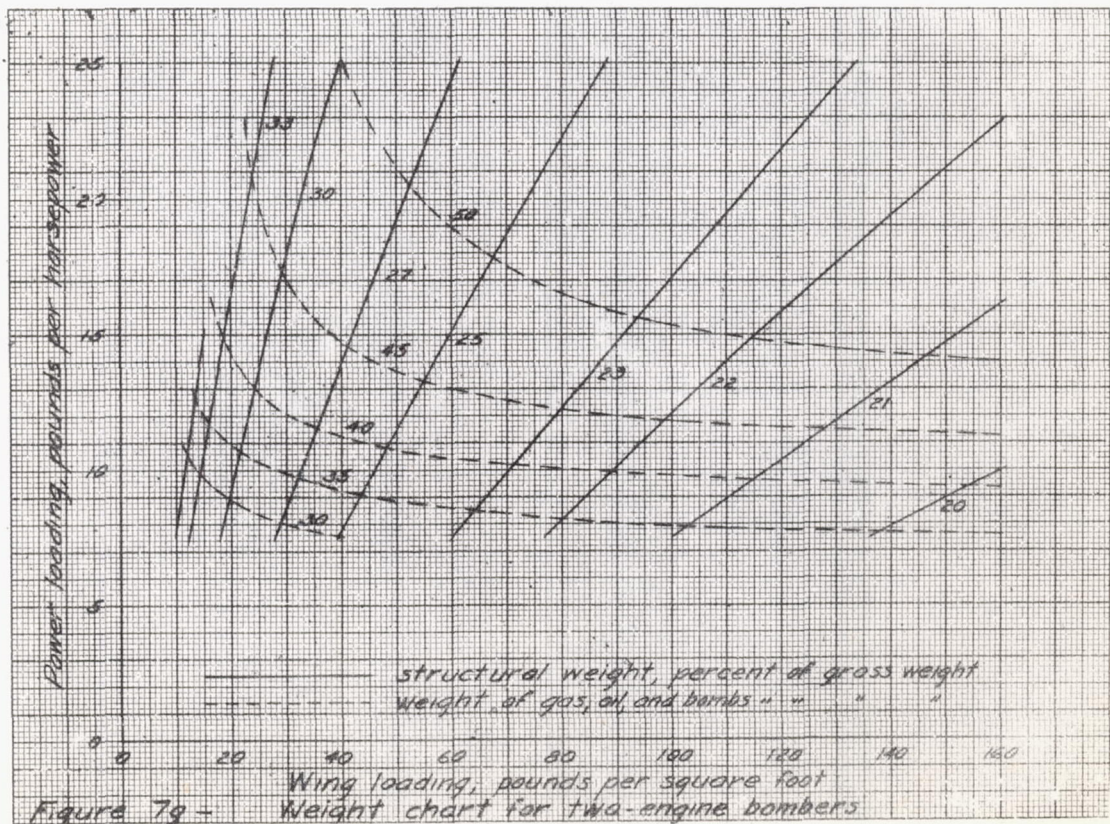 25
20
15
10
5
0
Power loading, pounds per horsepower
33
30
27
25
50
45
40
35
30
23
22
21
20
structural weight, percent of gross weight
weight of gas, oil, and bombs " " " "
0 20 40 60 80 100 120 140 160
Wing loading, pounds per square foot
Figure 7g - Weight chart for two-engine bombers